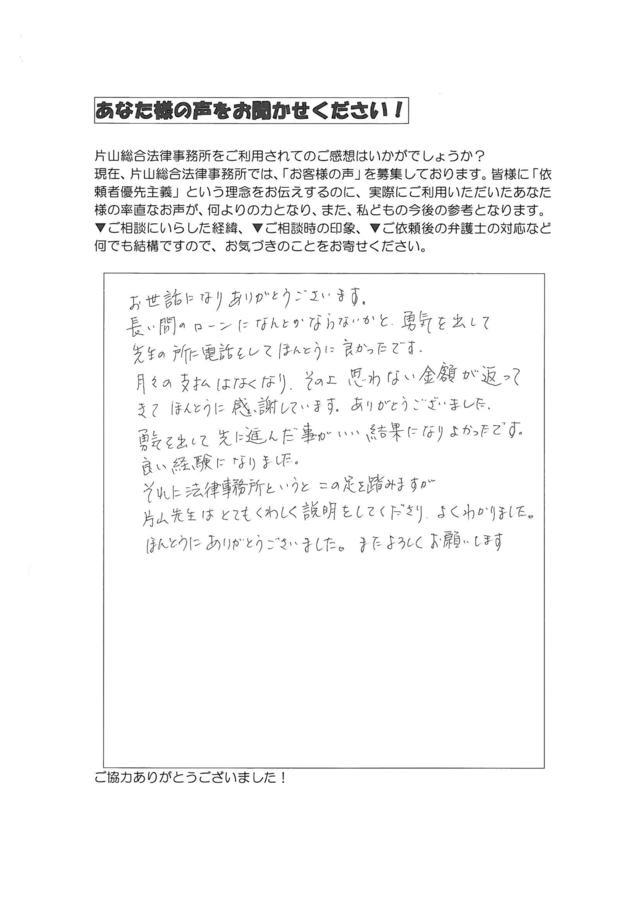 あなた様の声をお聞かせください！
片山総合法律事務所をご利用されてのご感想はいかがでしょうか？
現在、片山総合法律事務所では、「お客様の声」を募集しております。皆様に「依
頼者優先主義」という理念をお伝えするのに、実際にご利用いただいたあなた
様の率直なお声が、何よりの力となり、また、私どもの今後の参考となります。
▼ご相談にいらした経緯、▼ご相談時の印象、▼ご依頼後の弁護士の対応など
何でも結構ですので、お気づきのことをお寄せください。
お世話になりありがとうございます。
長い間のローンになんとかならないかと、勇気を出して
先生の所に電話をしてほんとうに良かったです。
月々の支払はなくなり、その上 思わない金額が返って
きて ほんとうに感謝しています。ありがとうございました。
勇気を出して先に進んだ事がいい結果になりよかったです。
良い経験になりました。
それに法律事務所というと この足を踏みますが
片山先生はとてもくわしく説明をしてくださり、よくわかりました。
ほんとうにありがとうございました。またよろしくお願いします
ご協力ありがとうございました！